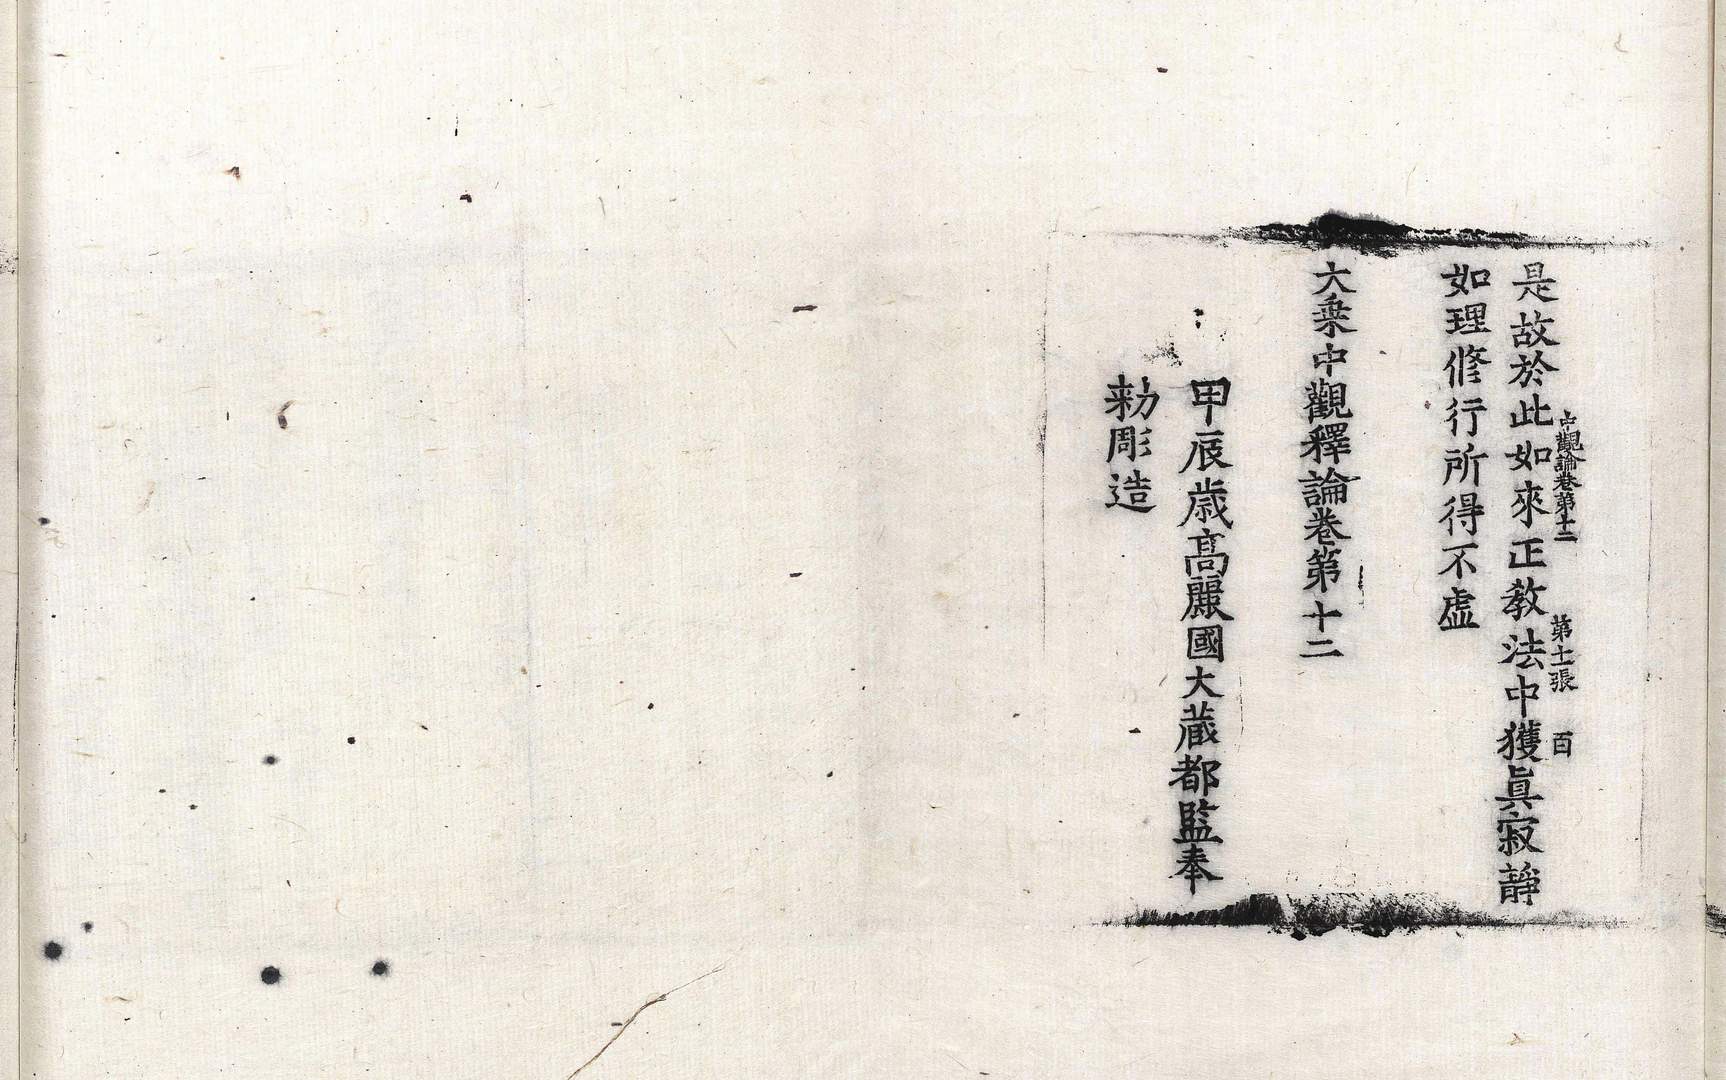 中觀論卷第十二 第十一張 百
是故於此如來正教法中獲眞寂靜
如理修行所得不虛
大乗中觀釋論卷第十二
甲辰歲高麗國大藏都監奉
勑彫造